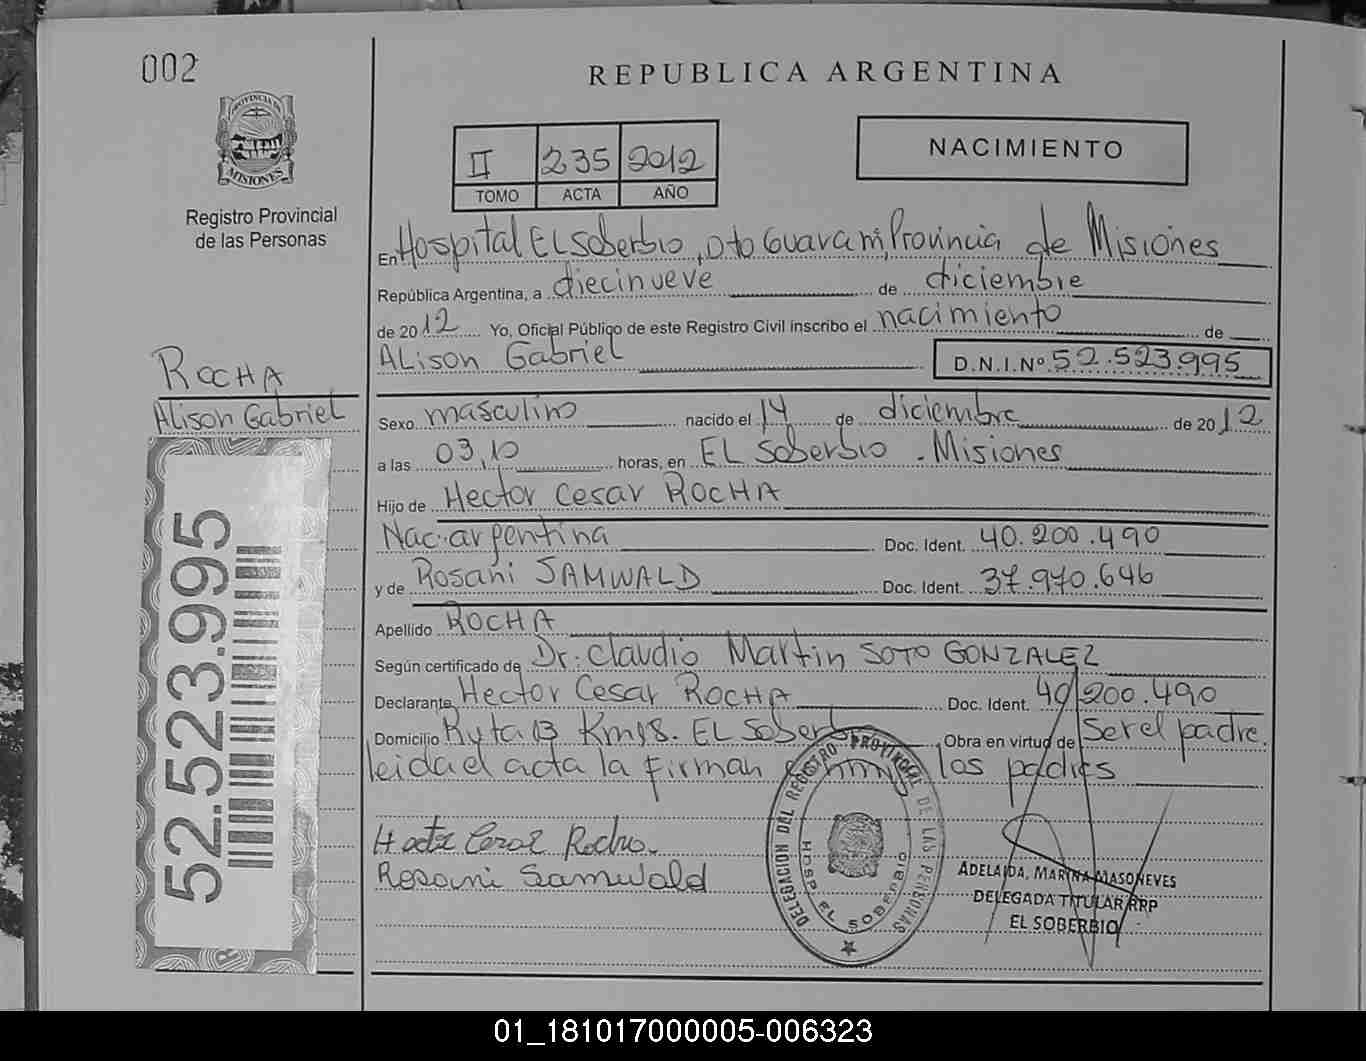 002
REPUBLICA ARGENTINA
PROVINCIA DE
MISIONES
Registro Provincial
de las Personas
II 235 2012
TOMO ACTA AÑO
NACIMIENTO
En Hospital El Soberbio, Dto Guarani, Provincia de Misiones
República Argentina, a diecinueve de diciembre
de 2012 Yo, Oficial Público de este Registro Civil inscribo el nacimiento de
ALison Gabriel D.N.I.Nº 52.523.995
ROCHA
Alison Gabriel
Sexo masculino nacido el 14 de diciembre de 2012
a las 03,10 horas, en EL Soberbio - Misiones
Hijo de Hector Cesar ROCHA
Nac. argentina Doc. Ident. 40.200.490
y de Rosani SAMWALD Doc. Ident. 37.970.646
Apellido ROCHA
Según certificado de Dr. Claudio Martin SOTO GONZALEZ
Declarante Hector Cesar ROCHA Doc. Ident. 40.200.490
Domicilio Ruta 13 Km 18. EL Soberbio Obra en virtud de Ser el padre.
leida el acta la firman los padres
52.523.995
Rosani Samwald
DELEGACION DEL REGISTRO PROVINCIAL DE LAS PERSONAS
HOSP. EL SOBERBIO
ADELAIDA, MARINA MASONEVES
DELEGADA TITULAR RRP
EL SOBERBIO
01_181017000005-006323